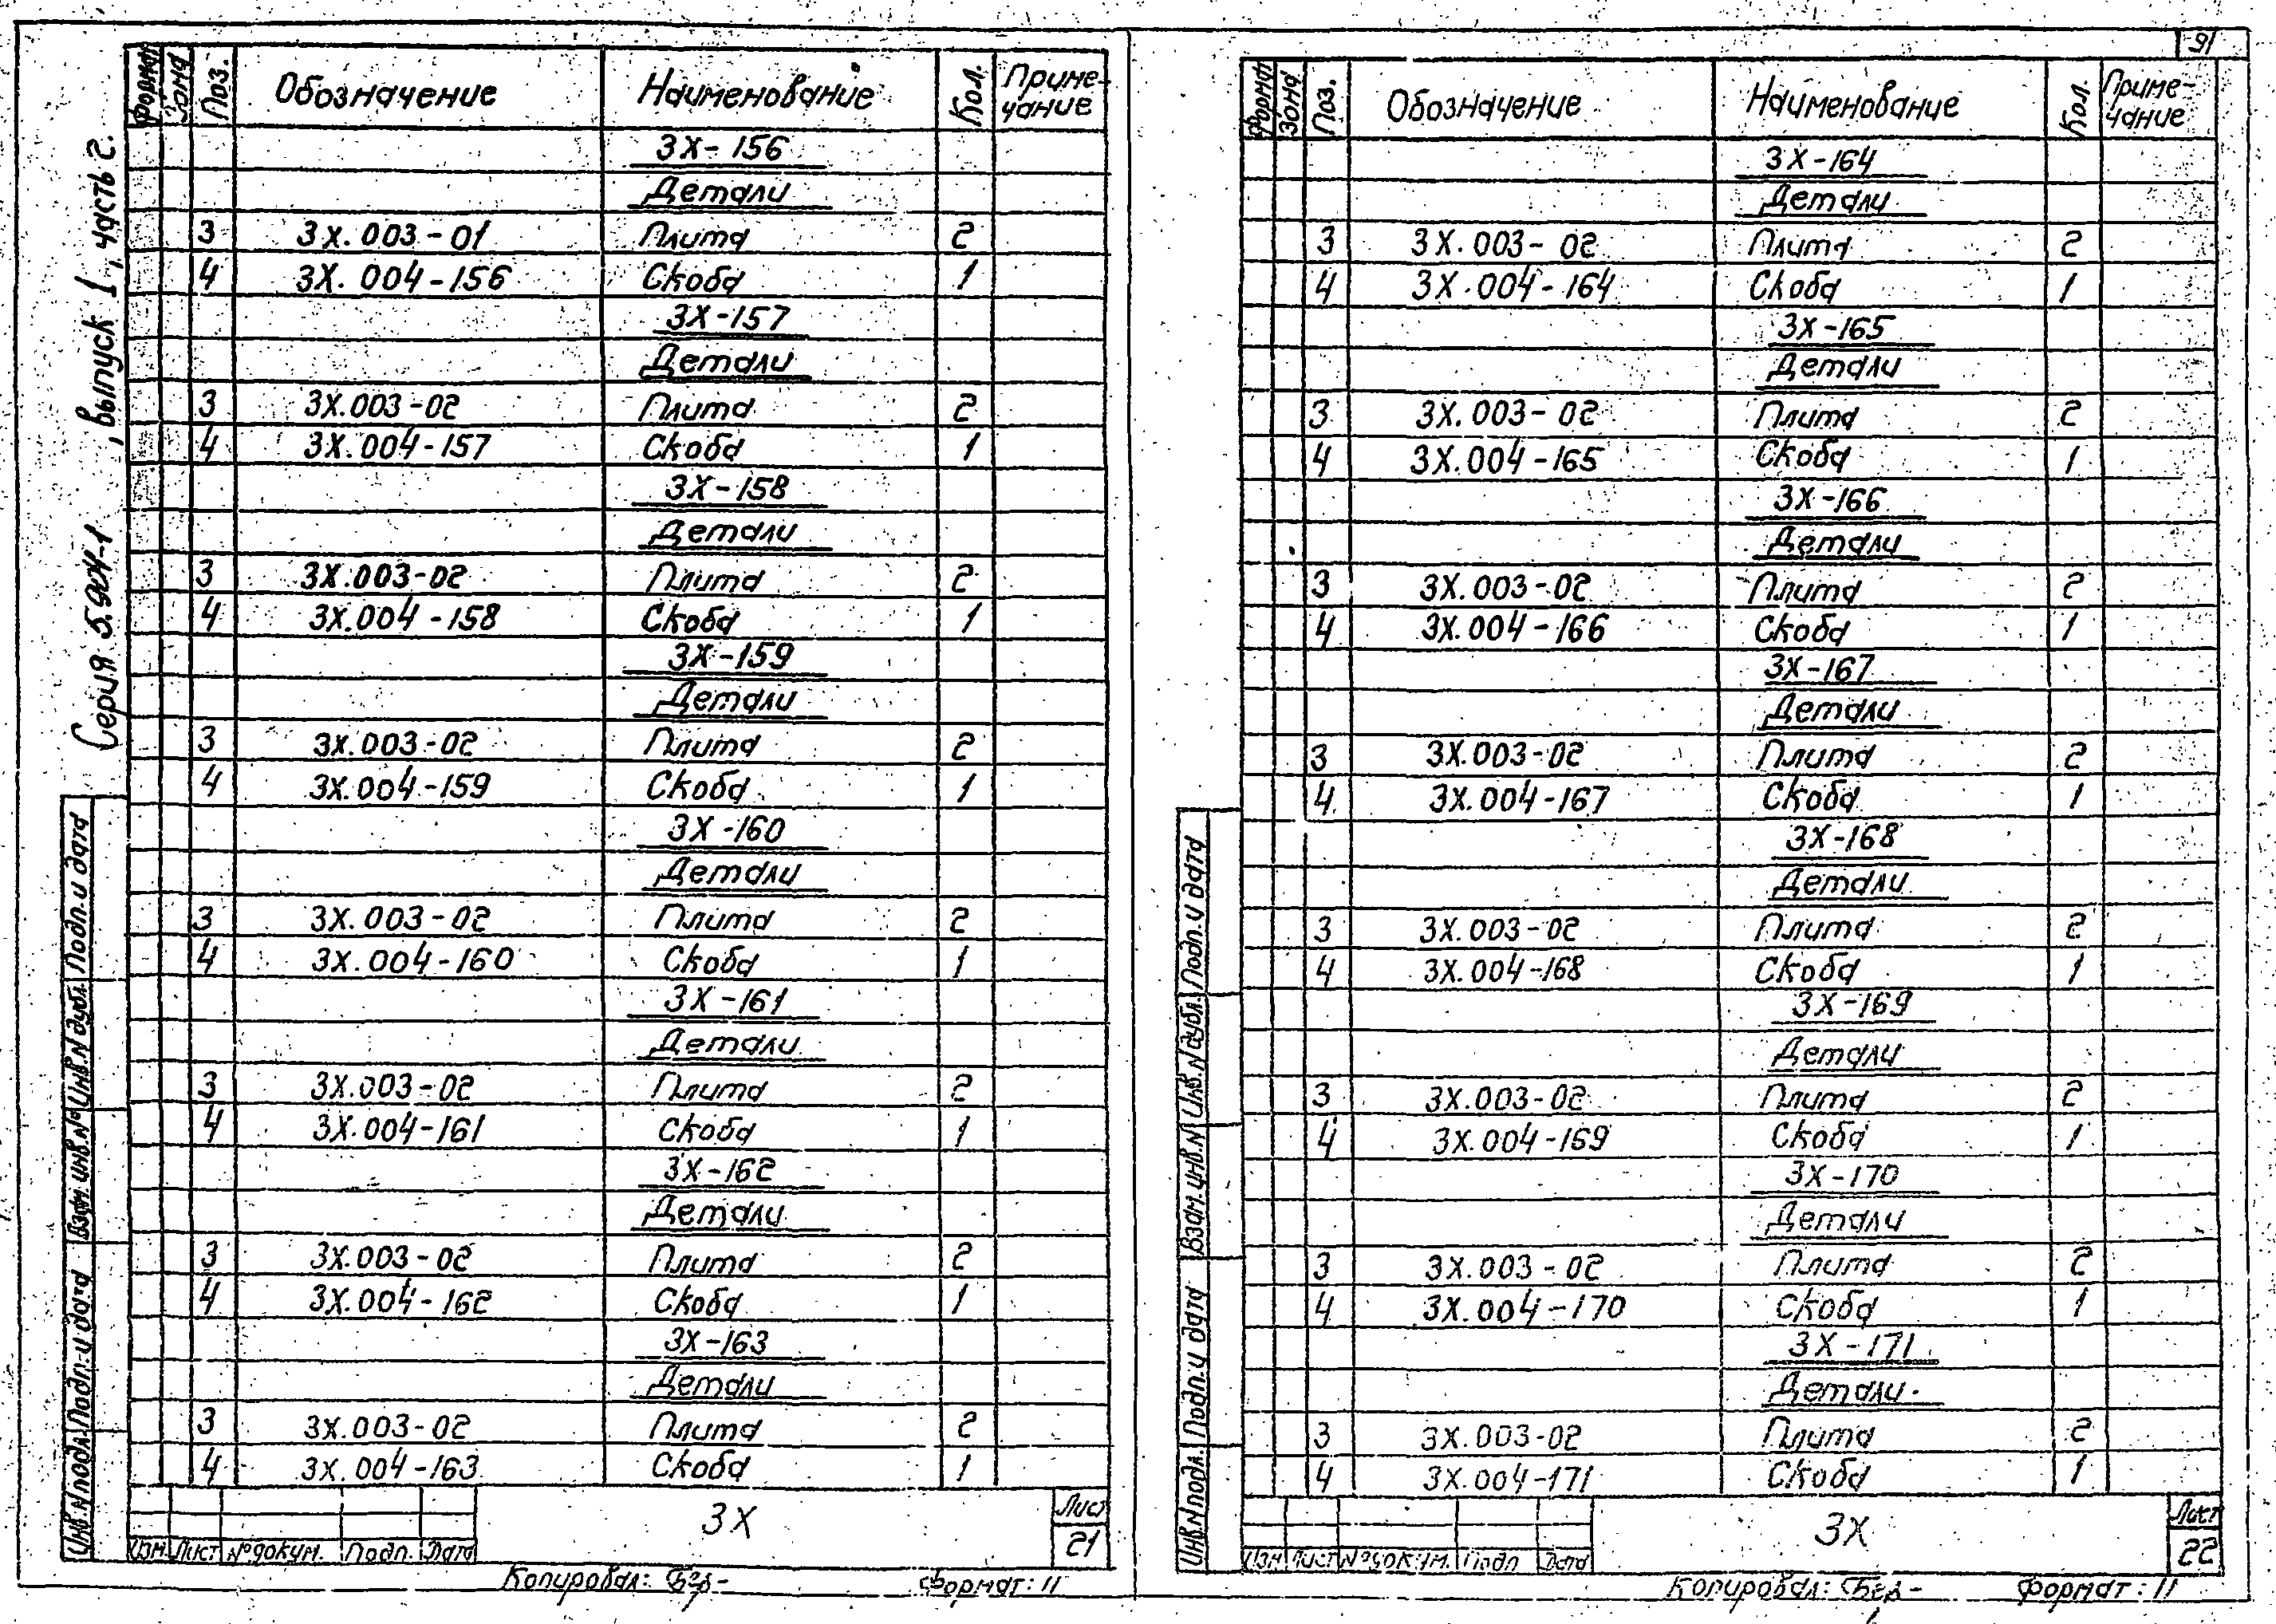 Серия 5.904-1 , выпуск 1, часть 2.
Формат Зона Поз. Обозначение Наименование Кол. Приме-
чание
3Х-156
Детали
3 3Х.003-01 Плита 2
4 3Х.004-156 Скоба 1
3Х-157
Детали
3 3Х.003-02 Плита 2
4 3Х.004-157 Скоба 1
3Х-158
Детали
3 3Х.003-02 Плита 2
4 3Х.004-158 Скоба 1
3Х-159
Детали
3 3Х.003-02 Плита 2
4 3Х.004-159 Скоба 1
3Х-160
Детали
3 3Х.003-02 Плита 2
4 3Х.004-160 Скоба 1
3Х-161
Детали
3 3Х.003-02 Плита 2
4 3Х.004-161 Скоба 1
3Х-162
Детали
3 3Х.003-02 Плита 2
4 3Х.004-162 Скоба 1
3Х-163
Детали
3 3Х.003-02 Плита 2
4 3Х.004-163 Скоба 1
Инв.N подл. Подп. и дата Взам. инв.N° Инв.N дубл. Подп. и дата
Изм. Лист №докум. Подп. Дата
3Х
Лист
21
Копировал:
Формат: 11
91
Формат Зона Поз. Обозначение Наименование Кол. Приме-
чание
3Х-164
Детали
3 3Х.003-02 Плита 2
4 3Х.004-164 Скоба 1
3Х-165
Детали
3 3Х.003-02 Плита 2
4 3Х.004-165 Скоба 1
3Х-166
Детали
3 3Х.003-02 Плита 2
4 3Х.004-166 Скоба 1
3Х-167
Детали
3 3Х.003-02 Плита 2
4 3Х.004-167 Скоба 1
3Х-168
Детали
3 3Х.003-02 Плита 2
4 3Х.004-168 Скоба 1
3Х-169
Детали
3 3Х.003-02 Плита 2
4 3Х.004-169 Скоба 1
3Х-170
Детали
3 3Х.003-02 Плита 2
4 3Х.004-170 Скоба 1
3Х-171
Детали
3 3Х.003-02 Плита 2
4 3Х.004-171 Скоба 1
Инв.N подл. Подп. и дата Взам. инв.N Инв.N дубл. Подп. и дата
Изм Лист №докум. Подп Дата
3Х
Лист
22
Копировал:
Формат: 11